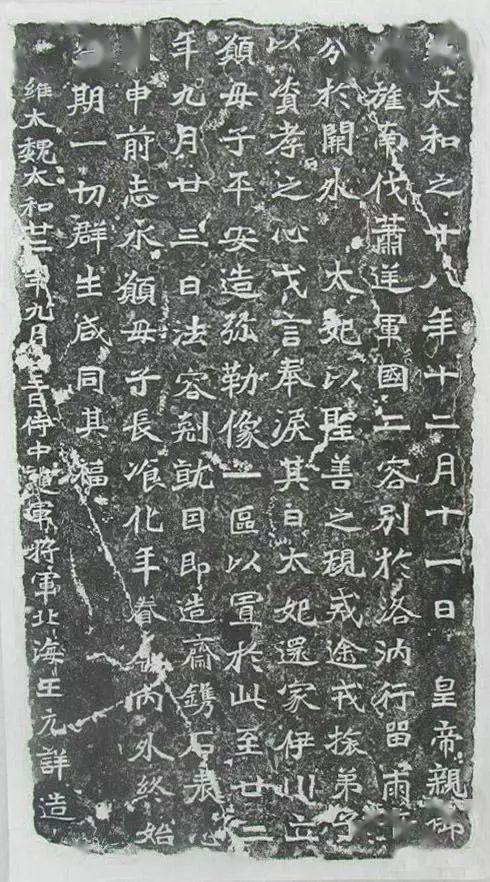 太和之十八年十二月十一日 皇帝親御
旌南伐蕭逆軍國二容別於洛汭行留兩
分於闕外 太妃以聖善之規戒途戎旅弟子
以資孝之心戈言奉淚其日太妃還家伊川立
願母子平安造弥勒像一區以置於此至廿二
年九月廿三日法容剋就因即造齋鐫石表心
申前志永願母子長飡化年眷内外終始
期一切群生咸同其福
維太魏太和廿二年九月三日侍中護軍將軍北海王元詳造